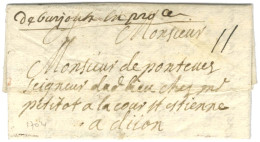 De barjoux en proce
Monsieur
11
Monsieur de ponteves
Seigneur dud lieu chez mr
petitot a la cour st estienne
a dijon